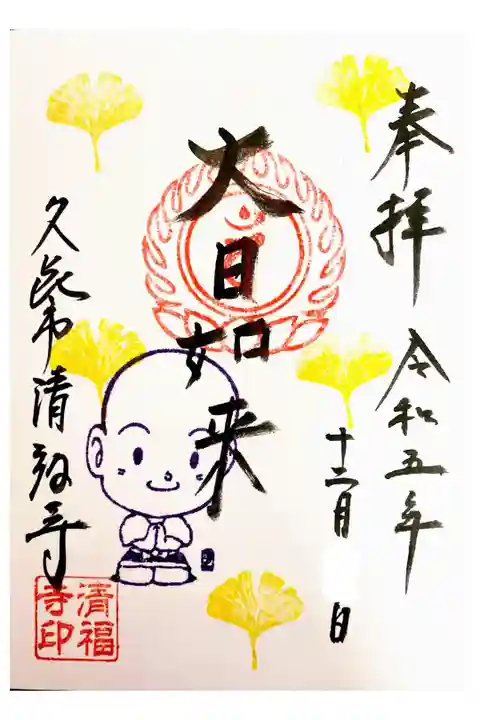 奉拝 令和五年
十二月 日
大日如来
久㐂市 清福寺
清福
寺印